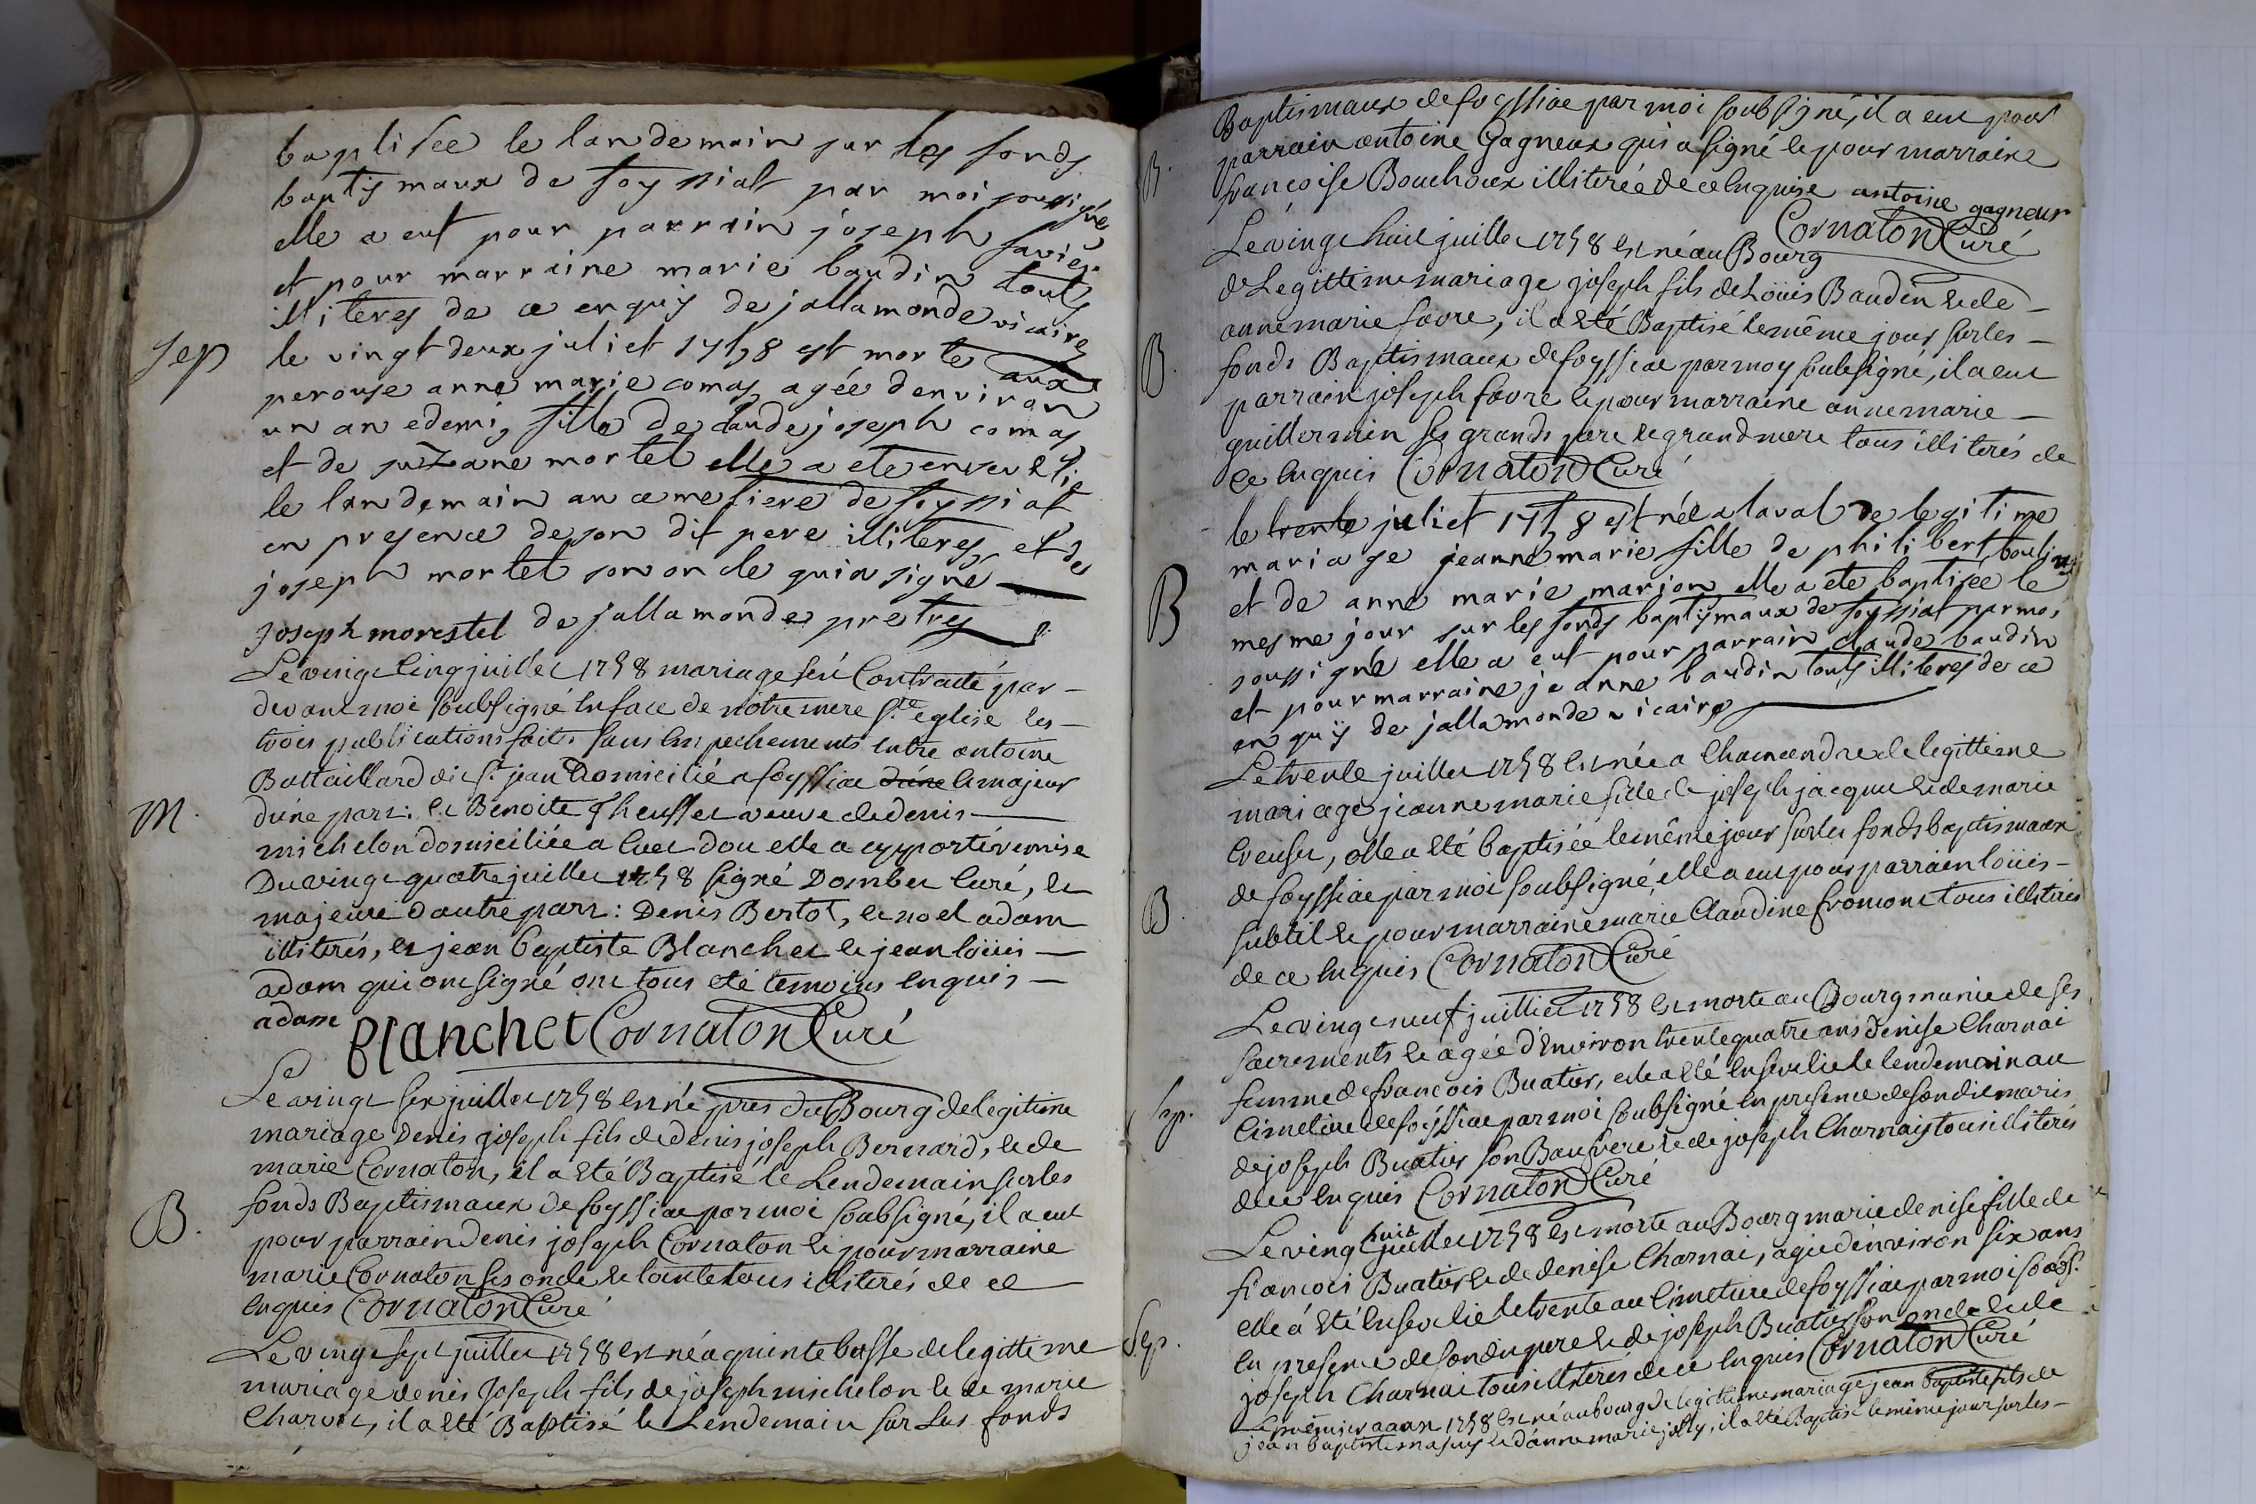 baptisée le landemain sur les fonds
baptismaux de foyssiat par moi soussigné
elle a eut pour parrain joseph favier
et pour marraine marie baudin touts
illiteres de ce enquis de jallamonde vicaire
Sep
le vingt deux juliet 1758 est morte aux
perouse anne marie comas agée denviron
un an edemi, fille de claude joseph comas
et de suzane mortel elle a ete ensevelie
le landemain au cemetiere de foyssiat
en presence de son dit pere illiteres, et de
joseph mortel son oncle qui a signé
joseph morestel de jallamonde prestres
Le vingt cinq juillet 1758 mariage feu Contracté par-
devant moi soubsigné en face de notre mere Ste eglise les
trois publications faites sans empechements entre antoine
Battaillard de St jean Domicilié a foyssiac d'une le majeur
M.
d'une part: et Benoite heusset veuve de denis
michelon domiciliée a Cuet dou elle a apporté remise
Du vingt quatre juillet 1758 signé Dombet Curé, et
majeure d'autre part: Denis Bertot, et noel adam
illiterés, et jean baptiste Blanchet et jean loüis
adam qui ont signé ont tous eté temoins enquis
adam Blanchet Cornaton Curé
Le vingt six juillet 1758 est né pres du Bourg de legitime
mariage Denis joseph fils de denis joseph Bernard, et de
marie Cornaton, il a eté Baptisé le Lendemain sur les
B.
fonds Baptismaux de foyssiac par moi soubsigné, il a eut
pour parrain denis joseph Cornaton et pour marraine
marie Cornaton ses oncle et tante tous illiterés de ce
enquis Cornaton Curé
Le vingt sept juillet 1758 est né a quinte basse de legittime
mariage denis Joseph fils de joseph michelon et de marie
Charvet, il a eté Baptisé le Lendemain sur Les fonds
Baptismaux de foyssiac par moi soubsigné, il a eut pour
B.
parrain antoine Gagneux qui a signé et pour marraine
françoise Bouchoux illiterée de ce enquise antoine gagneur
Cornaton Curé
Le vingt huit juillet 1758 est né au Bourg
de Legittime mariage joseph fils de Loüis Baudin et de
anne marie favre, il a eté Baptisé le même jour sur les
B.
fonds Baptismaux de foyssiac par moy soubsigné, il a eut
parrain joseph favre et pour marraine anne marie
guillermin ses grands pere et grand mere tous illiterés de
ce enquis Cornaton Curé
le trente juliet 1758 est née a laval de legitime
mariage jeanne marie fille de philibert
B
et de anne marie marion elle a ete baptisée le
mesme jour sur les fonds baptismaux de foyssiat par moi
soussigné elle a eut pour parrain claude baudin
et pour marraine jeanne baudin touts illiteres de ce
enquis de jallamonde vicaire
Le trente juillet 1758 est née a Chamandre de legittime
mariage jeanne marie fille de joseph jacquet et de marie
Creuset, elle a eté baptisée le même jour sur les fonds baptismaux
B.
de foyssiac par moi soubsigné, elle a eut pour parrain loüis
subtil et pour marraine marie Claudine fromont tous illiterés
de ce enquis Cornaton Curé
Le vingt neuf juillet 1758 est morte au Bourg munie de ses
sacrements et agée d'environ trente quatre ans denise Charnai
Sep.
femme de françois Buatier, elle a eté ensevelie le lendemain au
Cimetiere de foyssiac par moi soubsigné en presence de son dit mari
de joseph Buatier son Beaufrere et de joseph Charnai tous illiterés
de ce enquis Cornaton Curé
Le vingt huit juillet 1758 est morte au Bourg marie denise fille de
françois Buatier et de denise Charnai, agée d'environ six ans
elle a eté ensevelie le trente au Cimetiere de foyssiac par moi soubs.
Sep.
en presence de son dit pere et de joseph Buatier son oncle et de
joseph Charnai tous illiterés de ce enquis Cornaton Curé
Le premier aoust 1758 est né au bourg de legittime mariage jean baptiste fils de
jean baptiste et d'anne marie jolly, il a eté Baptisé le même jour sur les